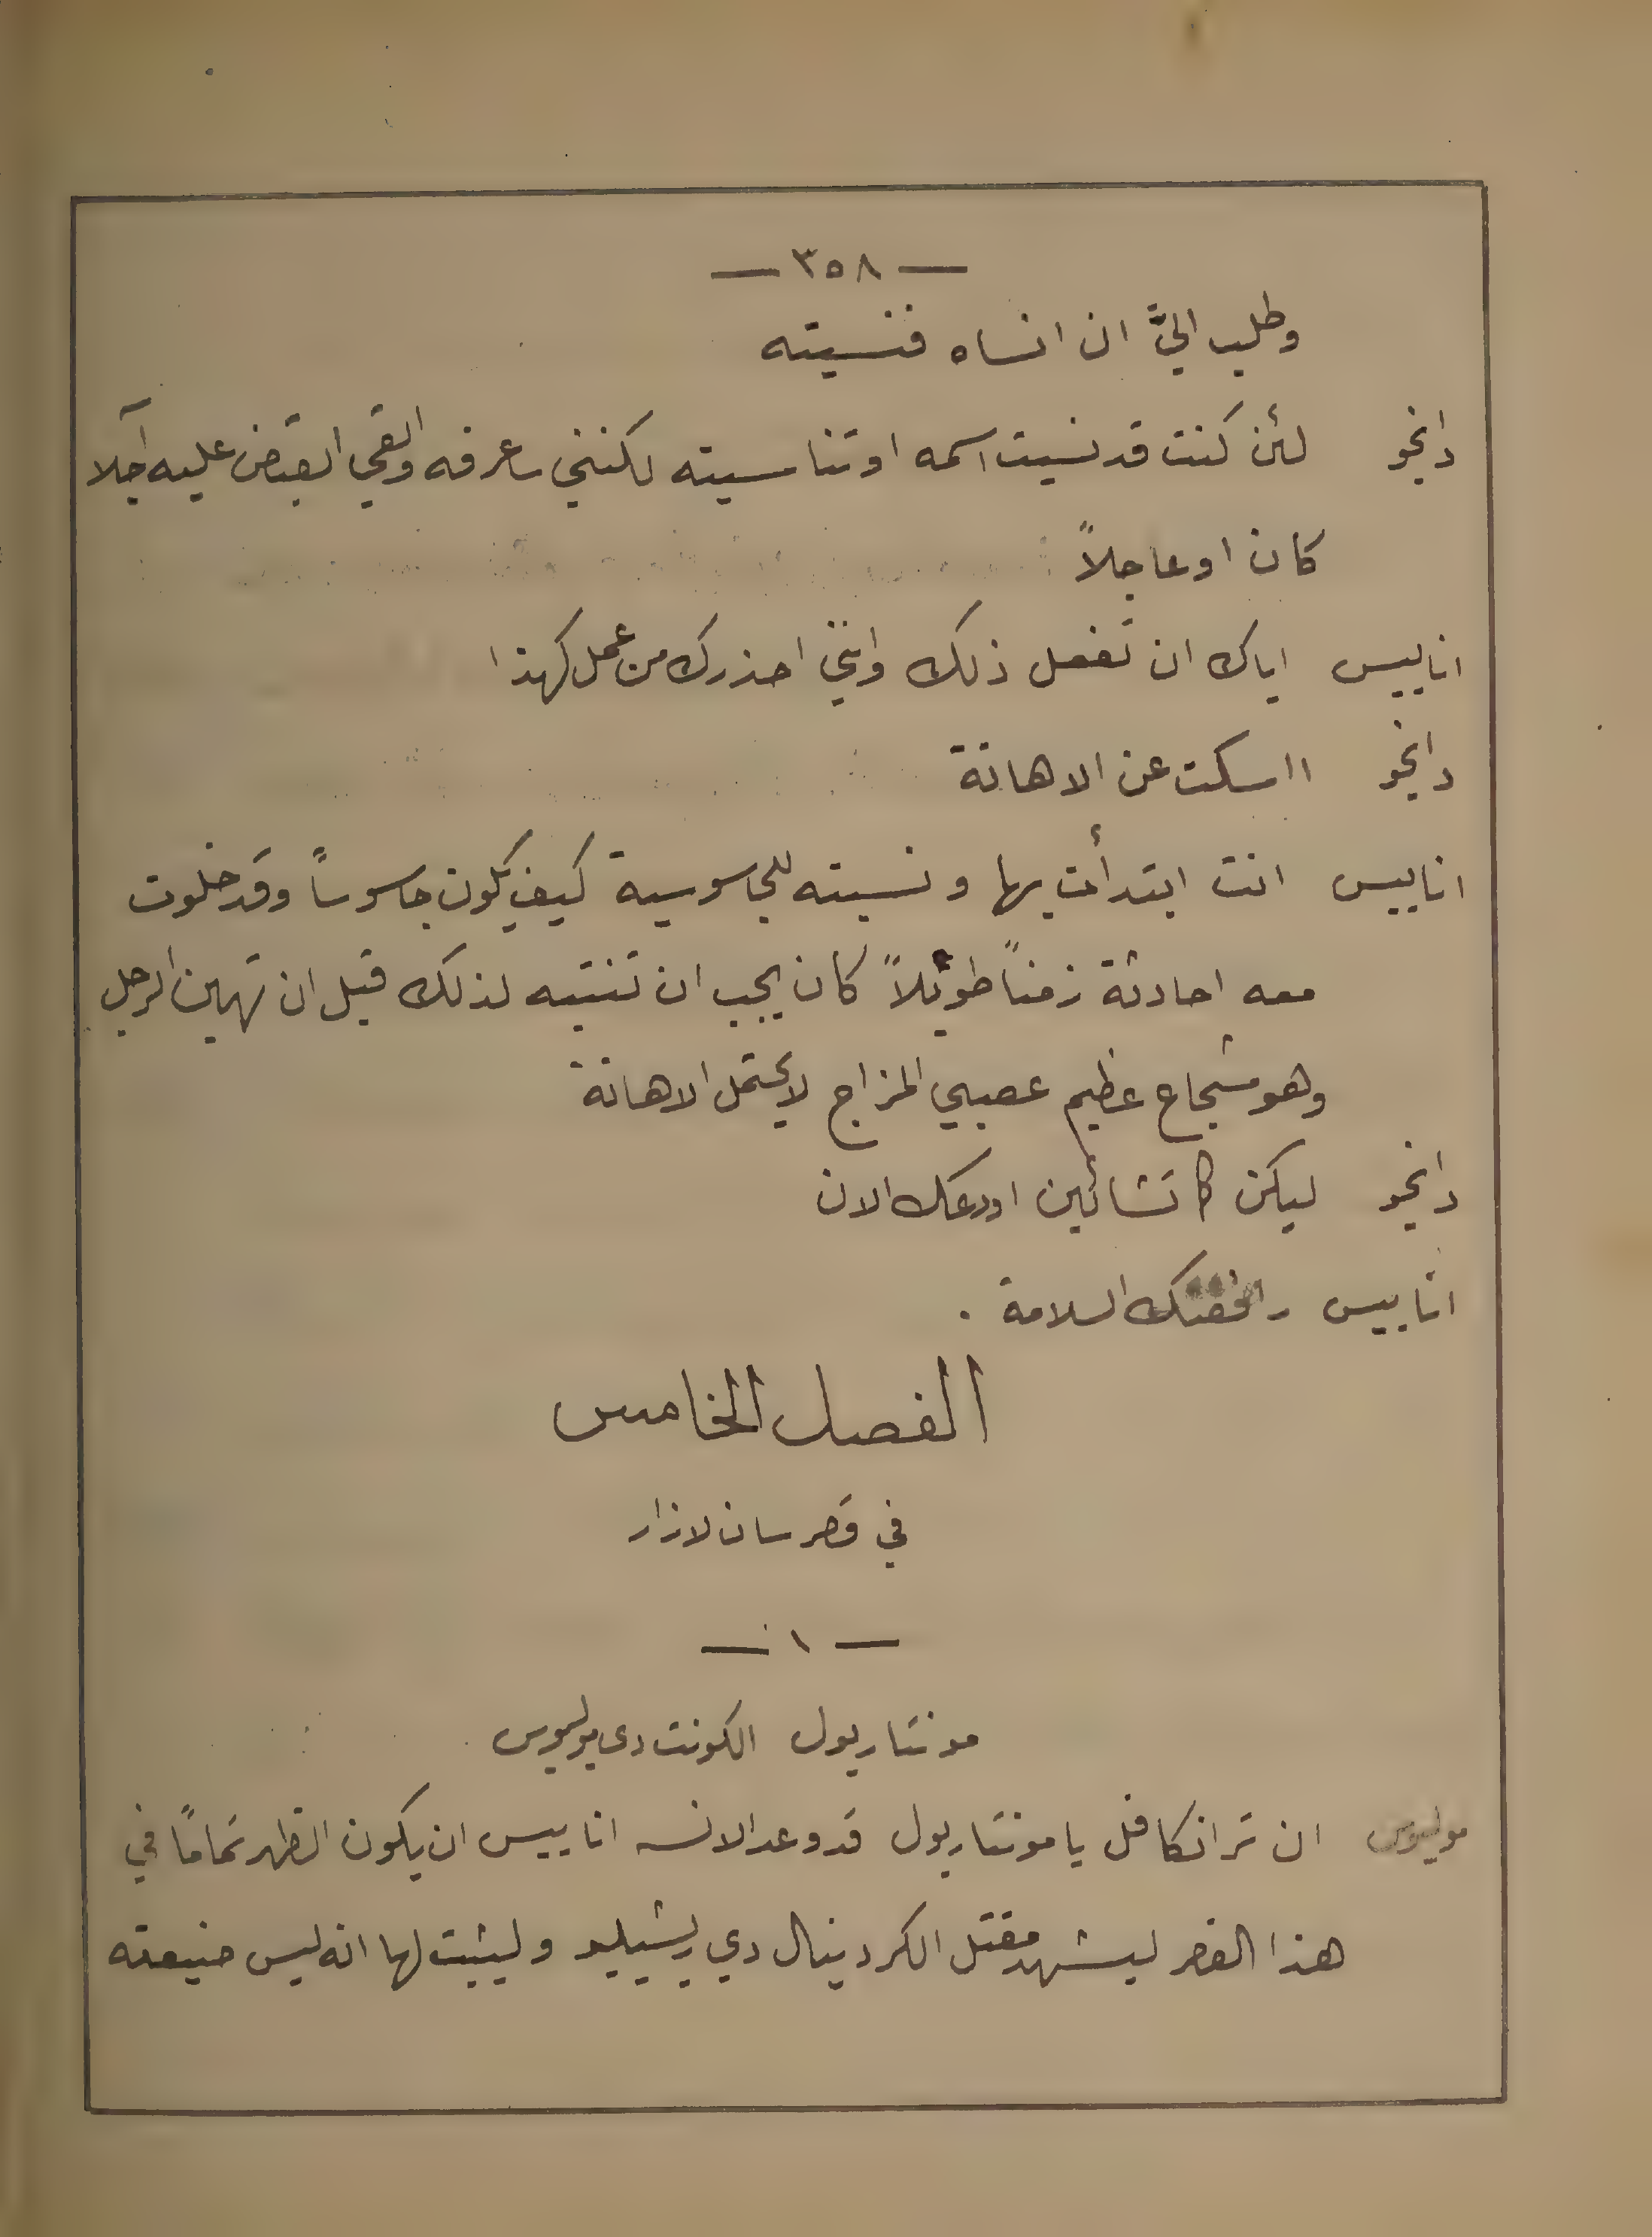 — ٣٥٨ —
وطلب اليَّ ان انساه فنسيته
دانجو لئن كنت قد نسيت اسمه او تناسيته لكنني ساعرفه والقي القبض عليه آجلا
كان او عاجلاً
اناييس اياك ان تفعل ذلك وانني احذرك من عمل كهذا
دانجو ااسكت عن الاهانة
اناييس انت ابتدأت بها ونسبته للجاسوسية كيف يكون جاسوساً وقد خلوت
معه احادثة زمناً طويلاً كان يجب ان تنتبه لذلك قبل ان تهين الرجل
وهو شجاع عظيم عصبي المزاج لا يحتمل الاهانة
دانجو ليكن كما تشائين اودعك الان
اناييس رافقتك السلامة .
الفصل الخامس
في قصر سان لازار
— ١ —
مونتاريول الكونت دي موليوس
موليوس ان ترانكافل يا مونتاريول قد وعد الانسه اناييس ان يكون الظهر تماماً في
هذا القصر ليشهد مقتل الكردينال دي ريشيليو وليثبت لها انه ليس صنيعته